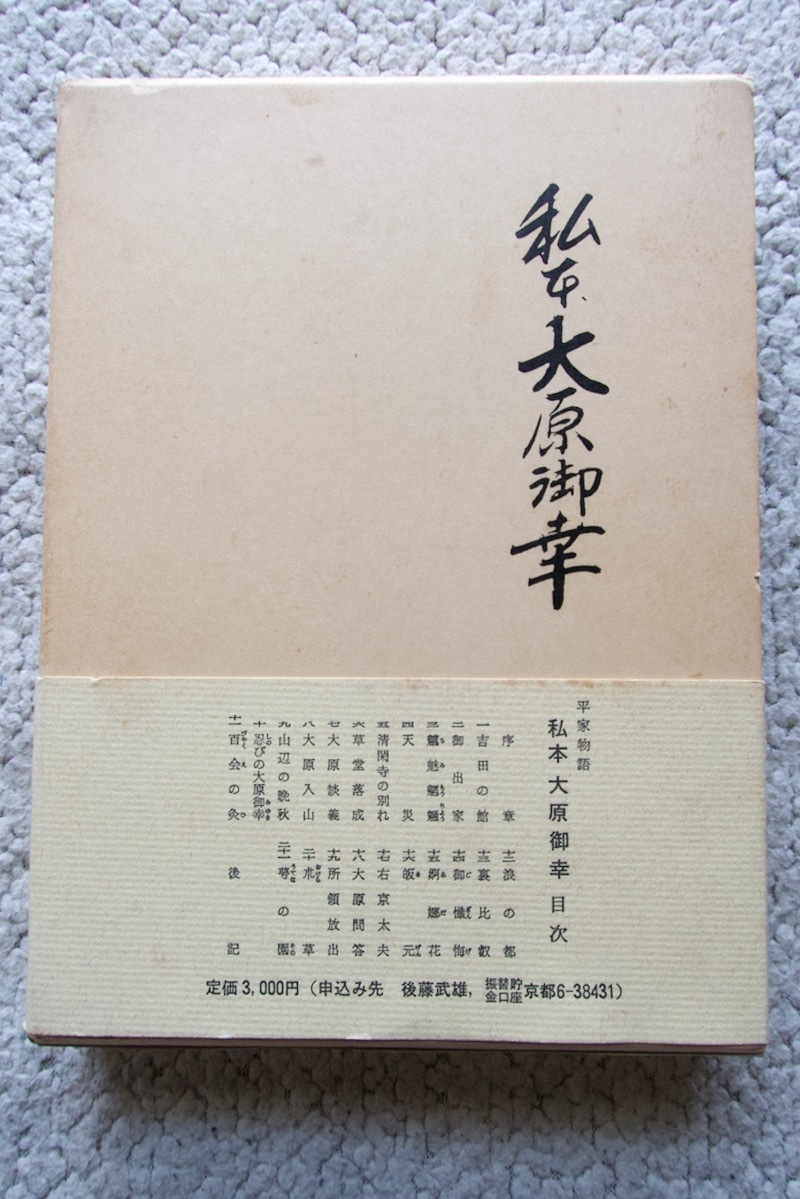 私本大原御幸
平家物語
私本 大原御幸 目次
序章
一 吉田の館
二 御出家
三 魑魅魍魎
四 天災
五 清閑寺の別れ
六 草堂落成
七 大原談義
八 大原入山
九 山辺の晩秋
十 忍びの大原御幸
十一 百会の灸
十二 浪の都
十三 裏比叡
十四 御懺悔
十五 婀娜花
十六 皈元
十七 右京太夫
十八 大原問答
十九 所領放出
二十 朮草
二十一 の園
後記
定価3,000円(申込み先 後藤武雄, 振替貯金口座京都6-38431)